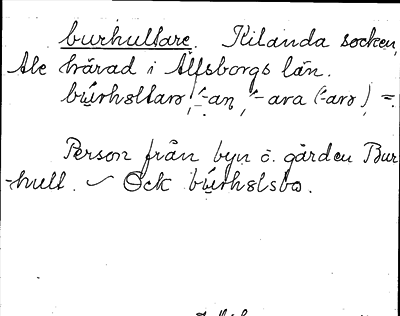 burhultare. Kilanda socken,
Ale härad i Älfsborgs län.
búrhɵltarə, ´-an, ´-ara (´-arə) =
Person från byn o. gården Bur-
hult. ~ Ock búrhɵlsbo.